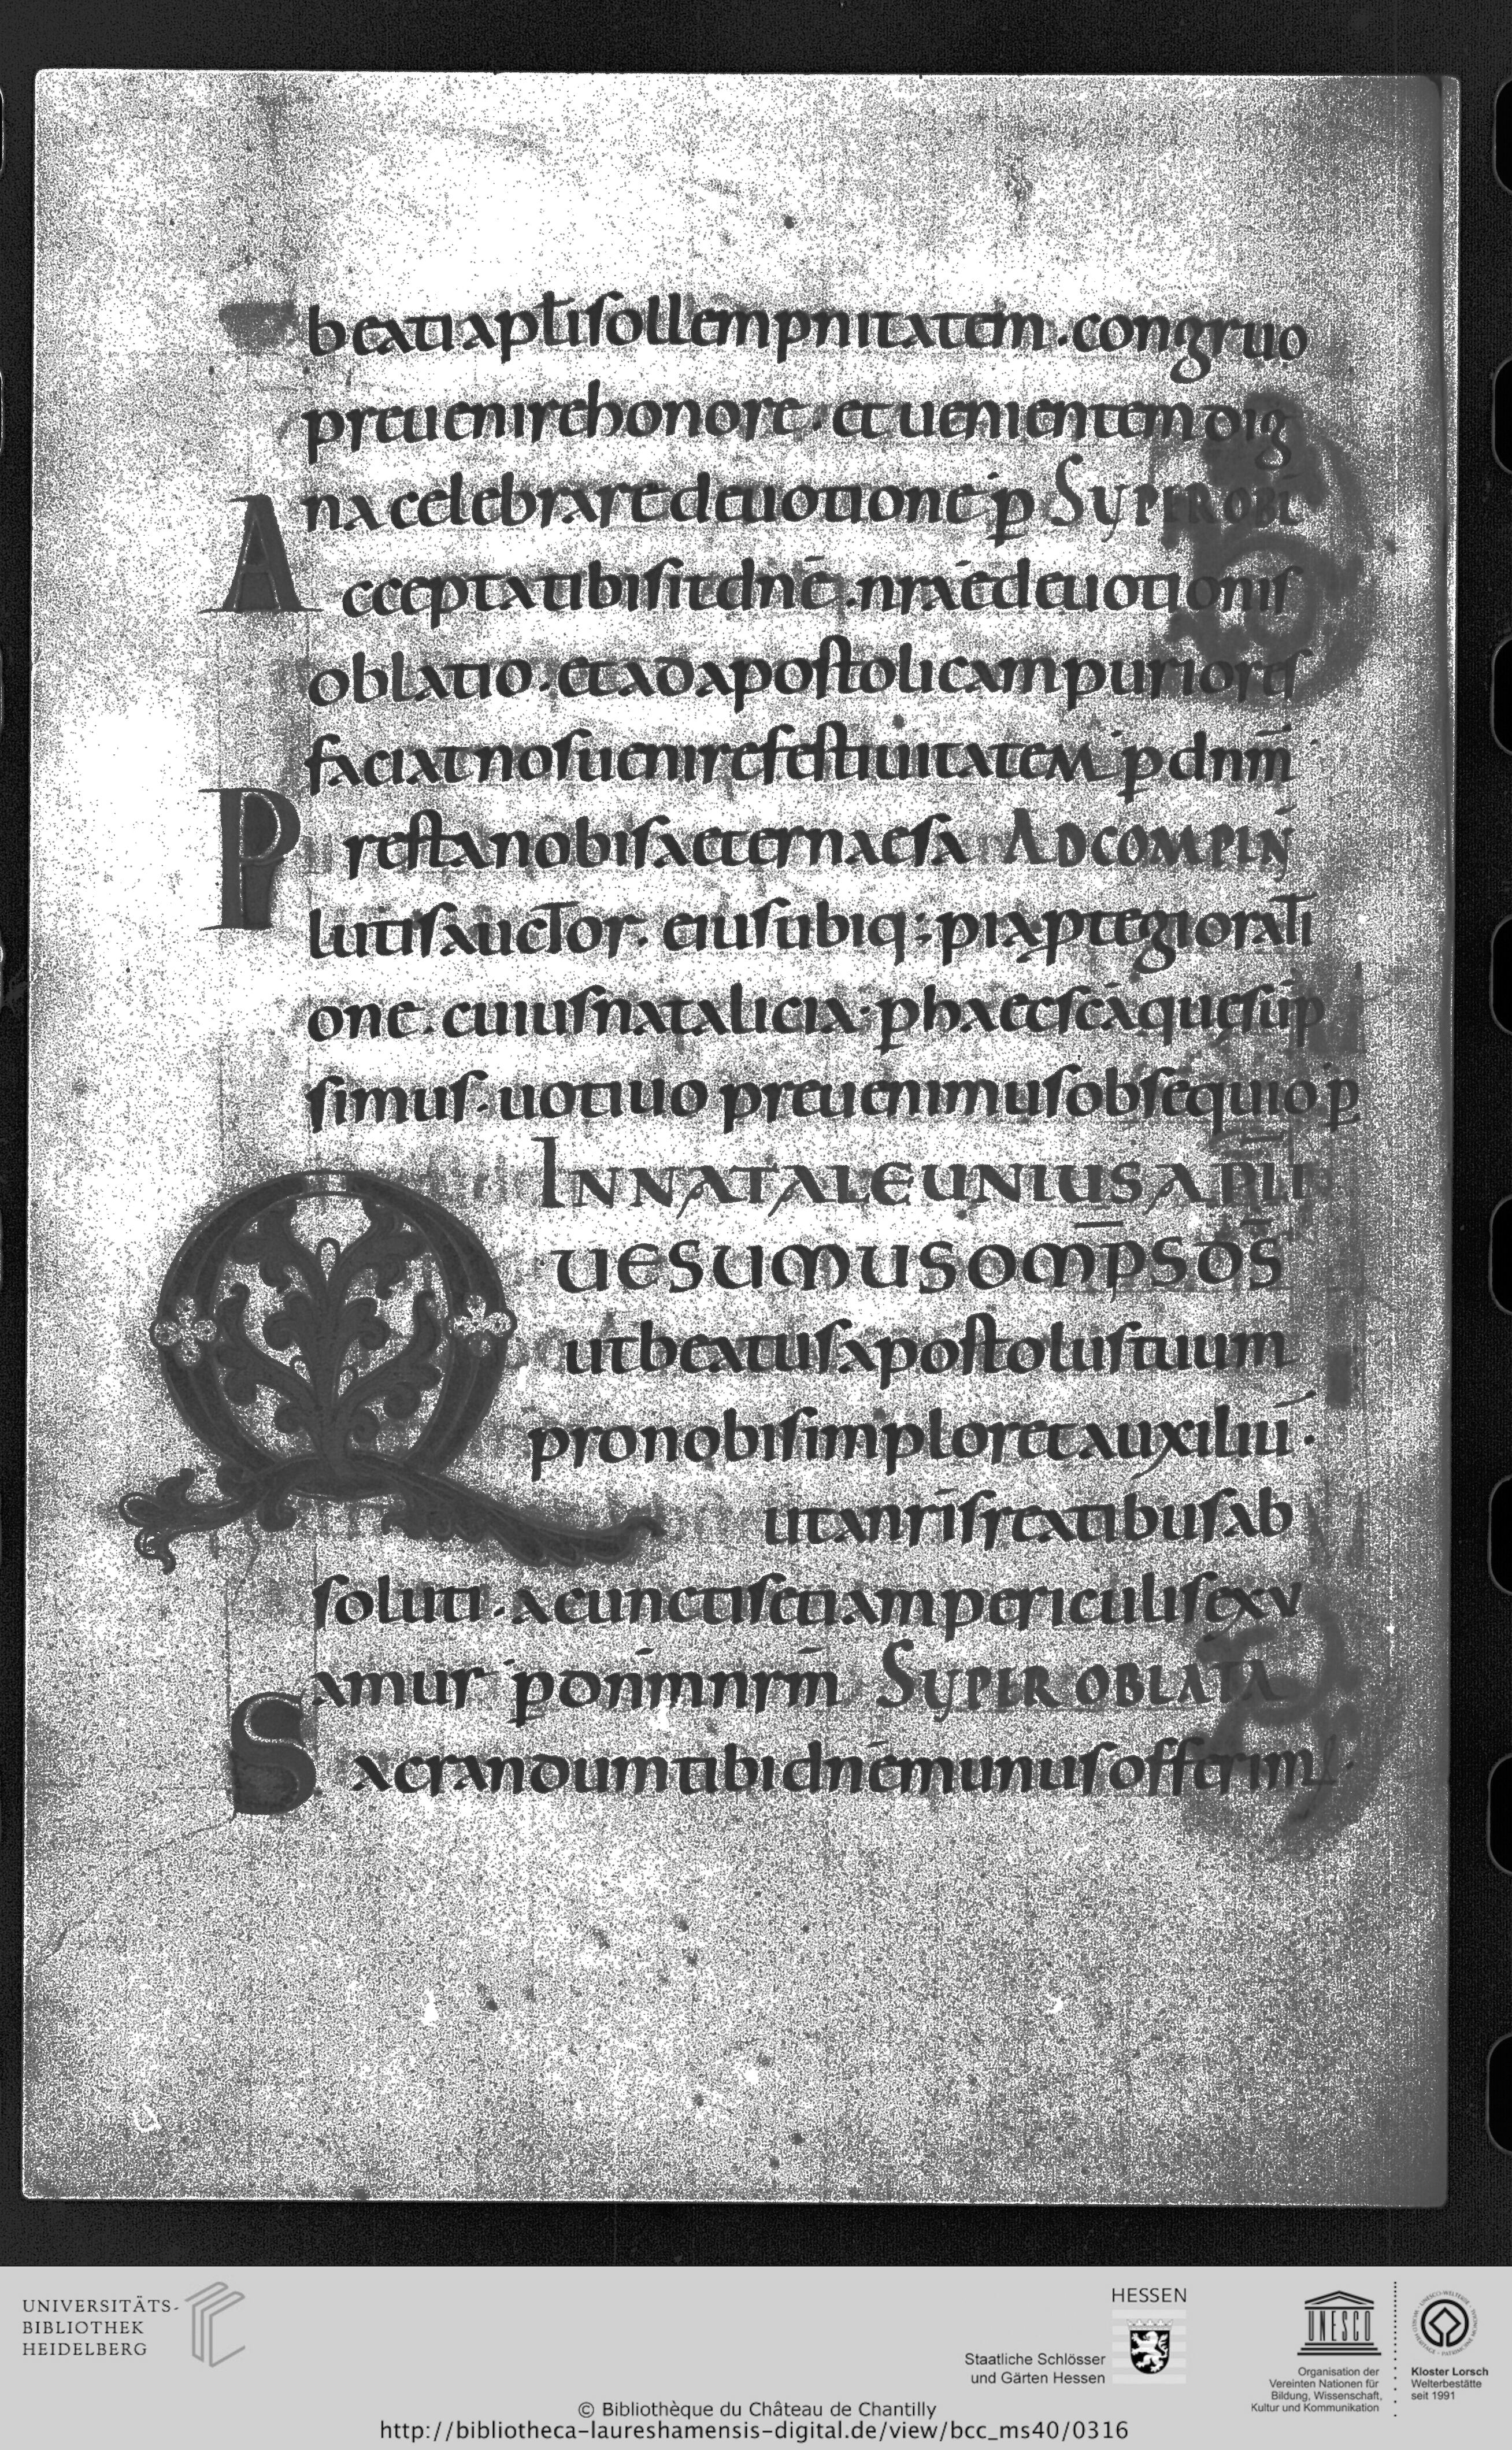 beati apłi sollempnitatem. congruo
preuenire honore. et uenientem dig
na celebrare deuotione. p SUPER OBL̄
Accepta tibi sit dnē. nrāe deuotionis
oblatio. et ad apostolicam puriores
faciat nos uenire festiuitatem. p dnm̄
Presta nobis aeterna esa AD COMPLN̄
lutis auctor. eius ubiq; pia ptegi orati
one. cuius natalicia. p haec scā que sūp
simus. uotiuo preuenimus obsequio. p
IN NATALE UNIUS APL̄I
QUESUMUS OMP̄S DS̄
ut beatus apostolus tuum
pro nobis imploret auxiliū.
ut a nrīs reatibus ab
soluti. a cunctis etiam periculis exu
amur. p dnm̄ nrm̄ SUPER OBLATA
Sacrandum tibi dnē munus offerim.
UNIVERSITÄTS-
BIBLIOTHEK
HEIDELBERG
HESSEN
Staatliche Schlösser
und Gärten Hessen
UNESCO
Organisation der
Vereinten Nationen für
Bildung, Wissenschaft,
Kultur und Kommunikation
UNESCO-WELTERBE
Kloster Lorsch
Welterbestätte
seit 1991
© Bibliothèque du Château de Chantilly
http://bibliotheca-laureshamensis-digital.de/view/bcc_ms40/0316